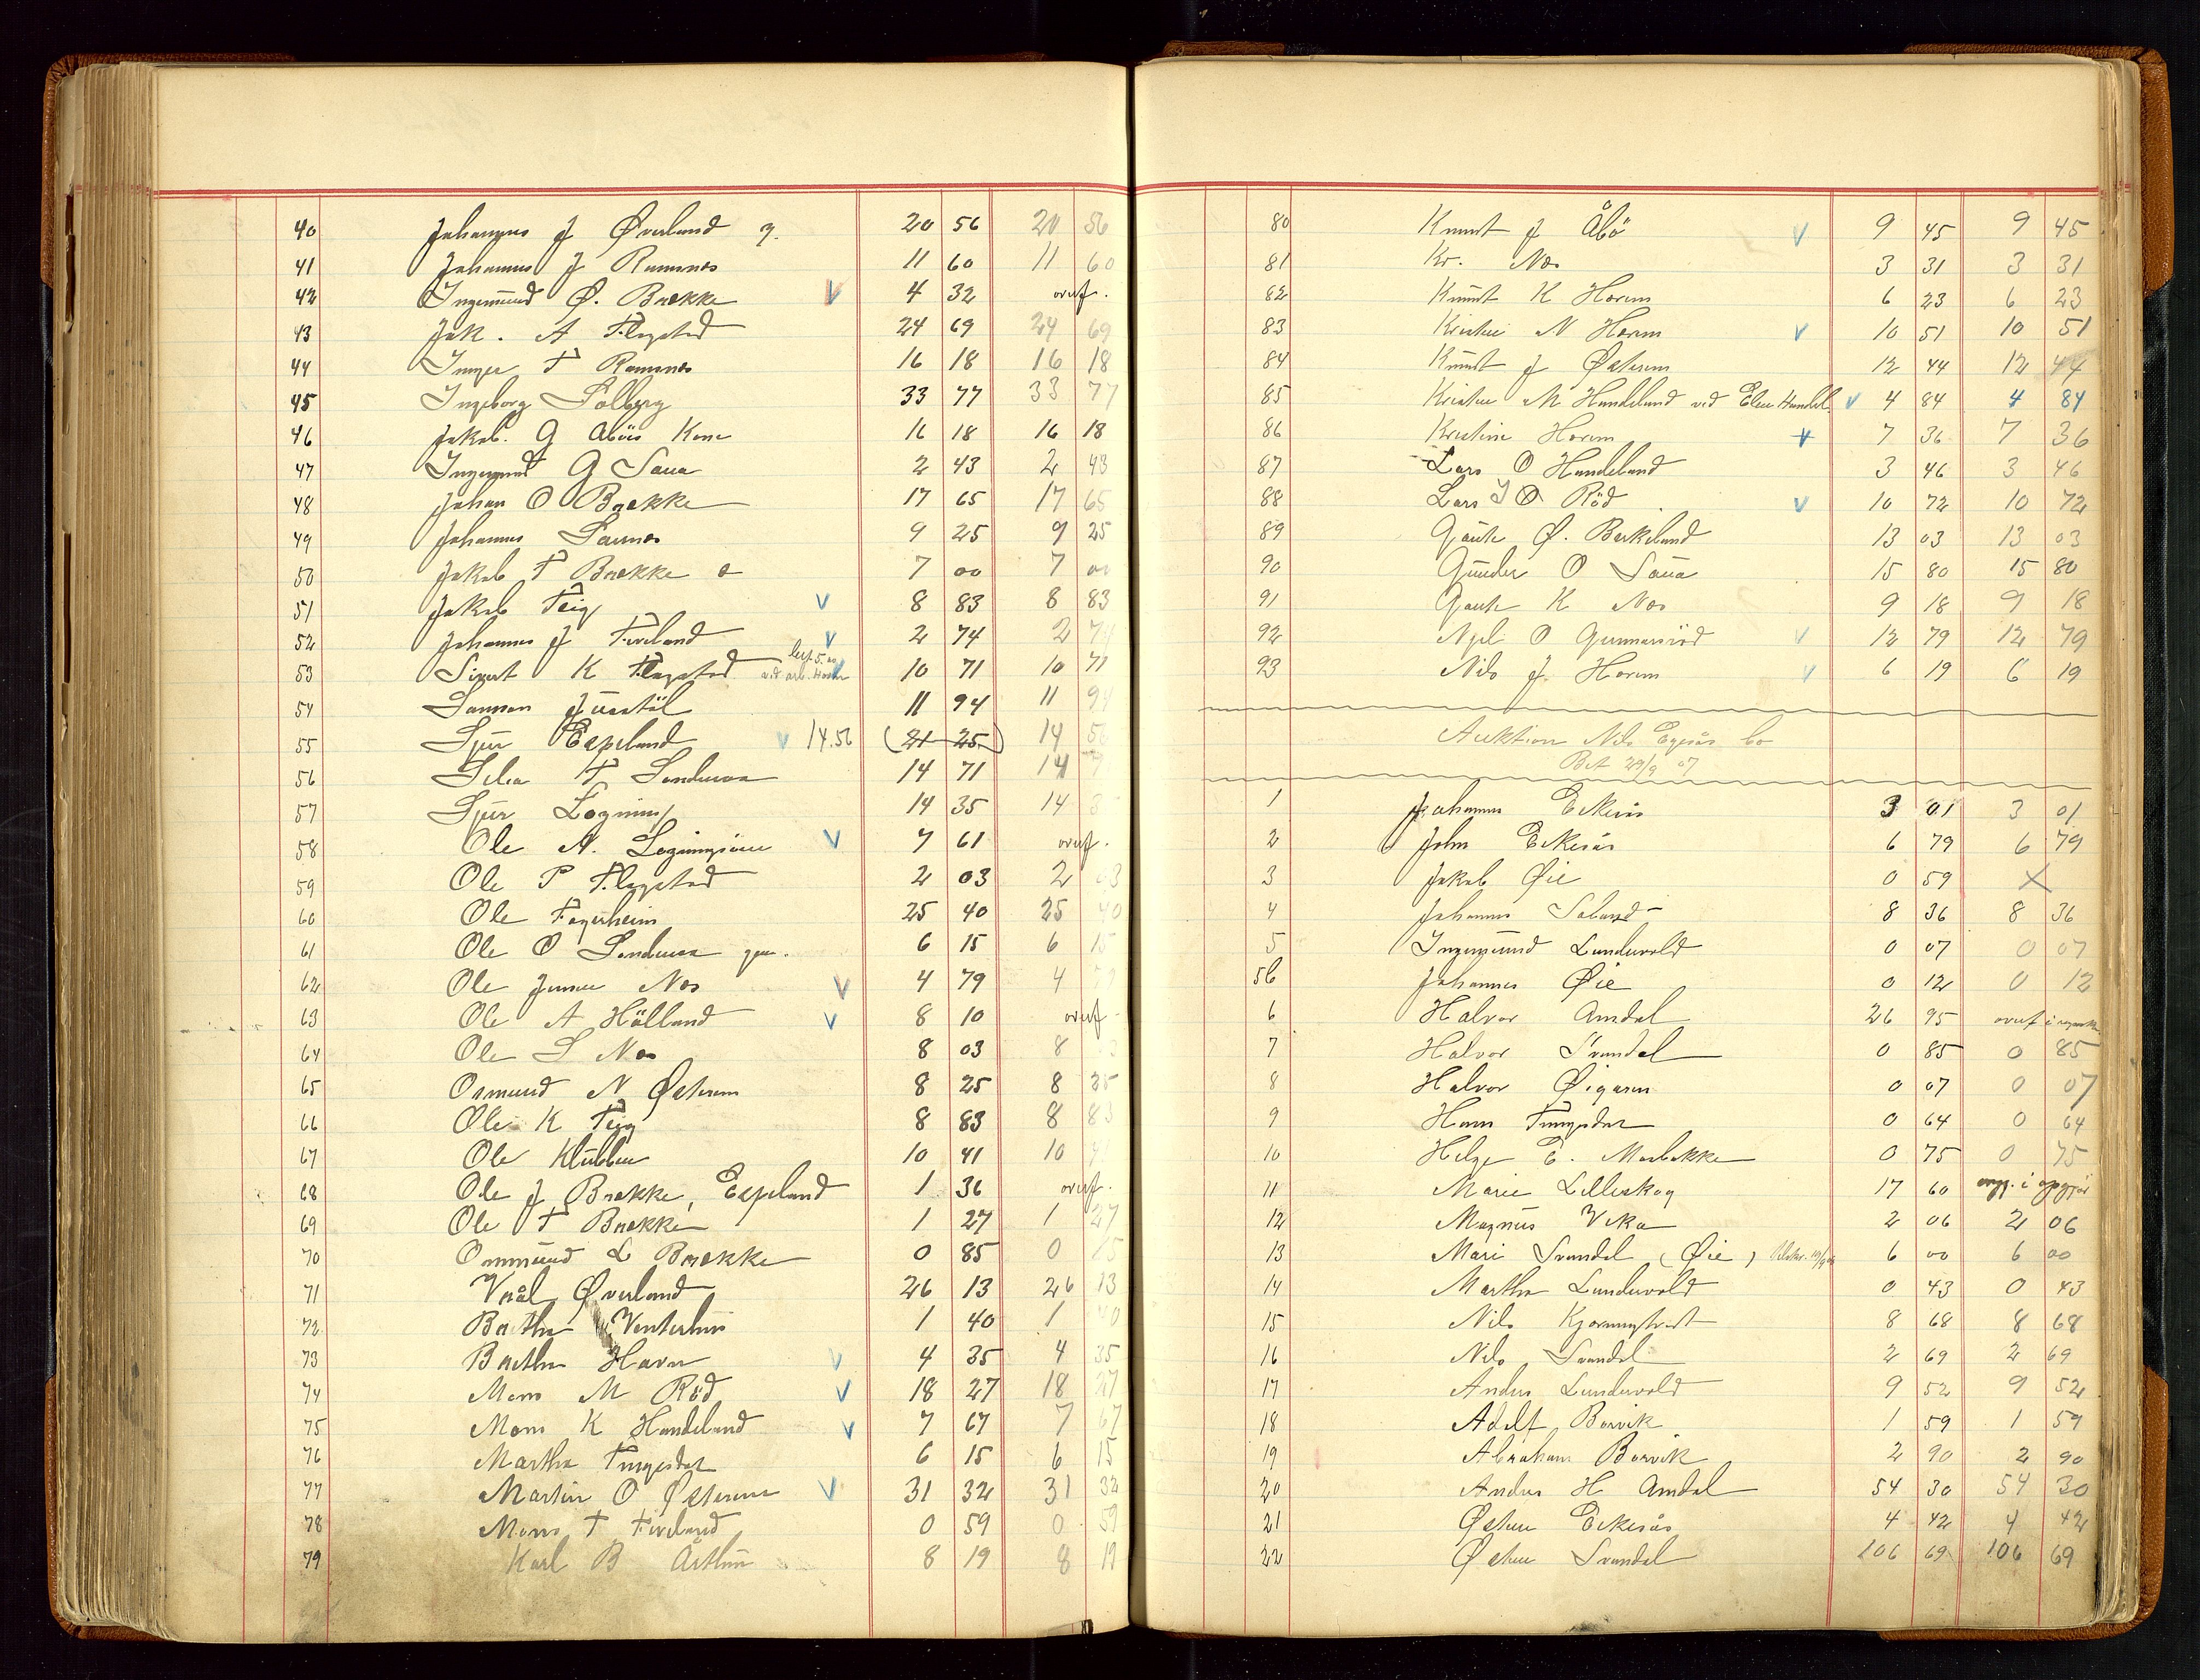 40 Johannes J Øverland g. 20 56 20 56
41 Johannes J Ramsnes 11 60 11 60
42 Ingemund Ø. Brekke V 4 32 overf.
43 Jak. A Flogstad 24 69 24 69
44 Inger T Ramsnes 16 18 16 18
45 Ingeborg Solberg 33 77 33 77
46 Jakob. G Abøes Kone 16 18 16 18
47 Ingemund G Saua 2 43 2 43
48 Johan O Brekke 17 65 17 65
49 Johannes Saunes 9 25 9 25
50 Jakob T Brekke 7 00 7 00
51 Jakob Teig V 8 83 8 83
52 Johannes J Fireland V 2 74 2 74
53 Sivert K Flogstad 10 71 10 71
54 11 94 11 94
55 Sjur Espeland V 14.56 (21 25) 14 56
56 Silia T Sandersa 14 71 14 7
57 Sjur Løgning 14 35 14 35
58 Ole N. V 7 61 overf.
59 Ole P Flogstad 2 03 2 03
60 Ole Fagerheim 25 40 25 40
61 Ole O 6 15 6 15
62 Ole Nes V 4 79 4 79
63 Ole A Hålland V 8 10 overf
64 Ole S Nes 8 03 8 03
65 Osmund N Østrem 8 25 8 25
66 Ole K Teig 8 83 8 83
67 Ole Klubben 10 41 10 41
68 Ole J Brekke, Espeland 1 36 overf.
69 Ole T Brekke 1 27 1 27
70 Ommund L Brekke 0 85 0 85
71 Vraal Øverland 26 13 26 13
72 Bertha Vesterhus 1 40 1 40
73 Berthe Havn V 4 35 4 35
74 Mons M Rød V 18 27 18 27
75 Mons K Handeland V 7 67 7 67
76 Martha Tungesdat 6 15 6 15
77 Martin O Østrem V 31 32 31 32
78 Mons T Fireland 0 59 0 59
79 Karl B Årthun 8 19 8 19
80 Knut J Åbö V 9 45 9 45
81 Kr. Nes 3 31 3 31
82 Knut K Horem 6 23 6 23
83 Kristen N Horem V 10 51 10 51
84 Knut J Østrem 12 44 12 44
85 Kristen M Handeland ved Elen Handel V 4 84 4 84
86 Kristine Horem V 7 36 7 36
87 Lars O Handeland 3 46 3 46
88 Lars I O Rød V 10 72 10 72
89 Gaute Ø. Berkeland 13 03 13 03
90 Gunder O Saua 15 80 15 80
91 Gaute K Nes 9 18 9 18
92 O Gunnarsrød V 12 79 12 79
93 Nils J. Horem V 6 19 6 19
Auktion Nils Egesås bo
Bet 29/9 07
1 Johannes Eikesås 3 01 3 01
2 John Eikesås 6 79 6 79
3 Jakob Øie 0 59 X
4 Johannes Saland 8 36 8 36
5 Ingemund Lundevold 0 07 0 07
5b Johannes Øie 0 12 0 12
6 Halvor Amdal 26 95 overf
7 Halvor Svandal 0 85 0 85
8 Halvor Øigaren 0 07 0 07
9 Hans Tungesdat 0 64 0 64
10 Helge E. Mosbekke 0 75 0 75
11 Marie Lilleskog 17 60 i opgjør
12 Magnus Vika 2 06 2 06
13 Mari Svandal (Øie) 6 00 6 00
14 Martha Lundevold 0 43 0 43
15 Nils 8 68 8 68
16 Nils Svandal 2 69 2 69
17 Andres Lundevold 9 52 9 52
18 Adolf Barvik 1 59 1 59
19 Abraham Barvik 2 90 2 90
20 Andres H Amdal 54 30 54 30
21 Østen Eikesås 4 42 4 42
22 Østen Svandal 106 69 106 69